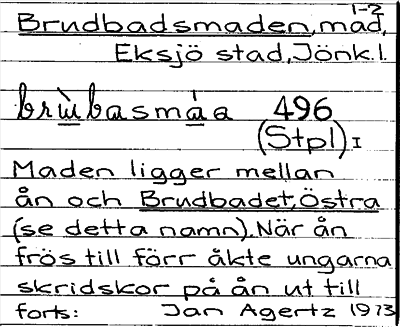 1-2
Brudbadsmaden, mad,
Eksjö stad, Jönk.l.
brùbasmáa 496
(Stpl) I
Maden ligger mellan
ån och Brudbadet, Östra
(se detta namn). När ån
frös till förr åkte ungarna
skridskor på ån ut till
forts: Jan Agertz 1973